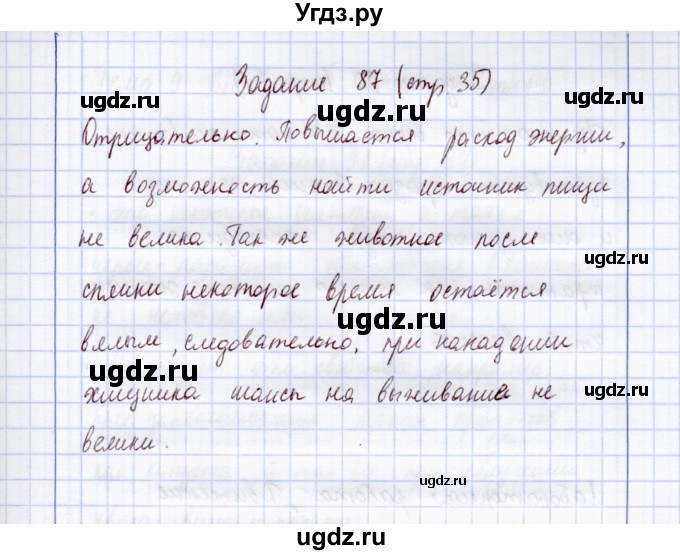 Угдз.ру
Задание 87 (стр 35)
Отрицательно. Повышается расход энергии,
а возможность найти источник пищи
не велика. Так же животное после
спячки некоторое время остаётся
вялым, следовательно, при нападении
хищника шансы на выживание не
велики.
ugdz.ru
ugdz.ru
ugdz.ru
ugdz.ru
ugdz.ru
ugdz.ru
ugdz.ru
ugdz.ru
ugdz.ru
ugdz.ru
ugdz.ru
ugdz.ru
ugdz.ru